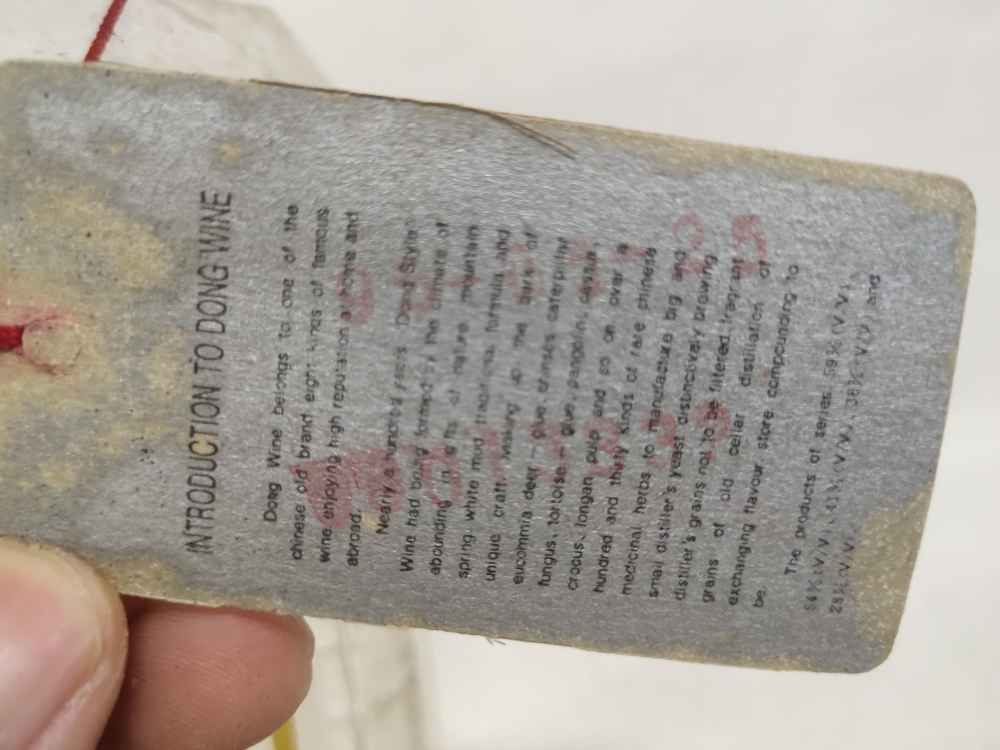 INTRODUCTION TO DONG WINE
Dong Wine belongs to one of the
chinese old brand eight kinds of famous
wine enjoying high reputation at home and
abroad.
Nearly a hundred years Dong Style
Wine had being formed's the climate of
abounding in gifts of nature, mountain
spring, white mud traditional formula and
unique craft. Making up the share of
eucommia deer glue chinies caterpillar
fungus, tortoise glue pangolin, cassia
crocus, longan pulp and so on over a
hundred and thirty kinds of rare chinese
medicinal herbs to manufacture big and
small distiller's yeast distinctively brewing
distiller's grains not to be filtered, fragrant
grains of old cellar distillation of
exchanging flavour store compounding to
be.
The products of series 59% V/V,
54% V/V, V/V, 38% V/V and
28% V/V